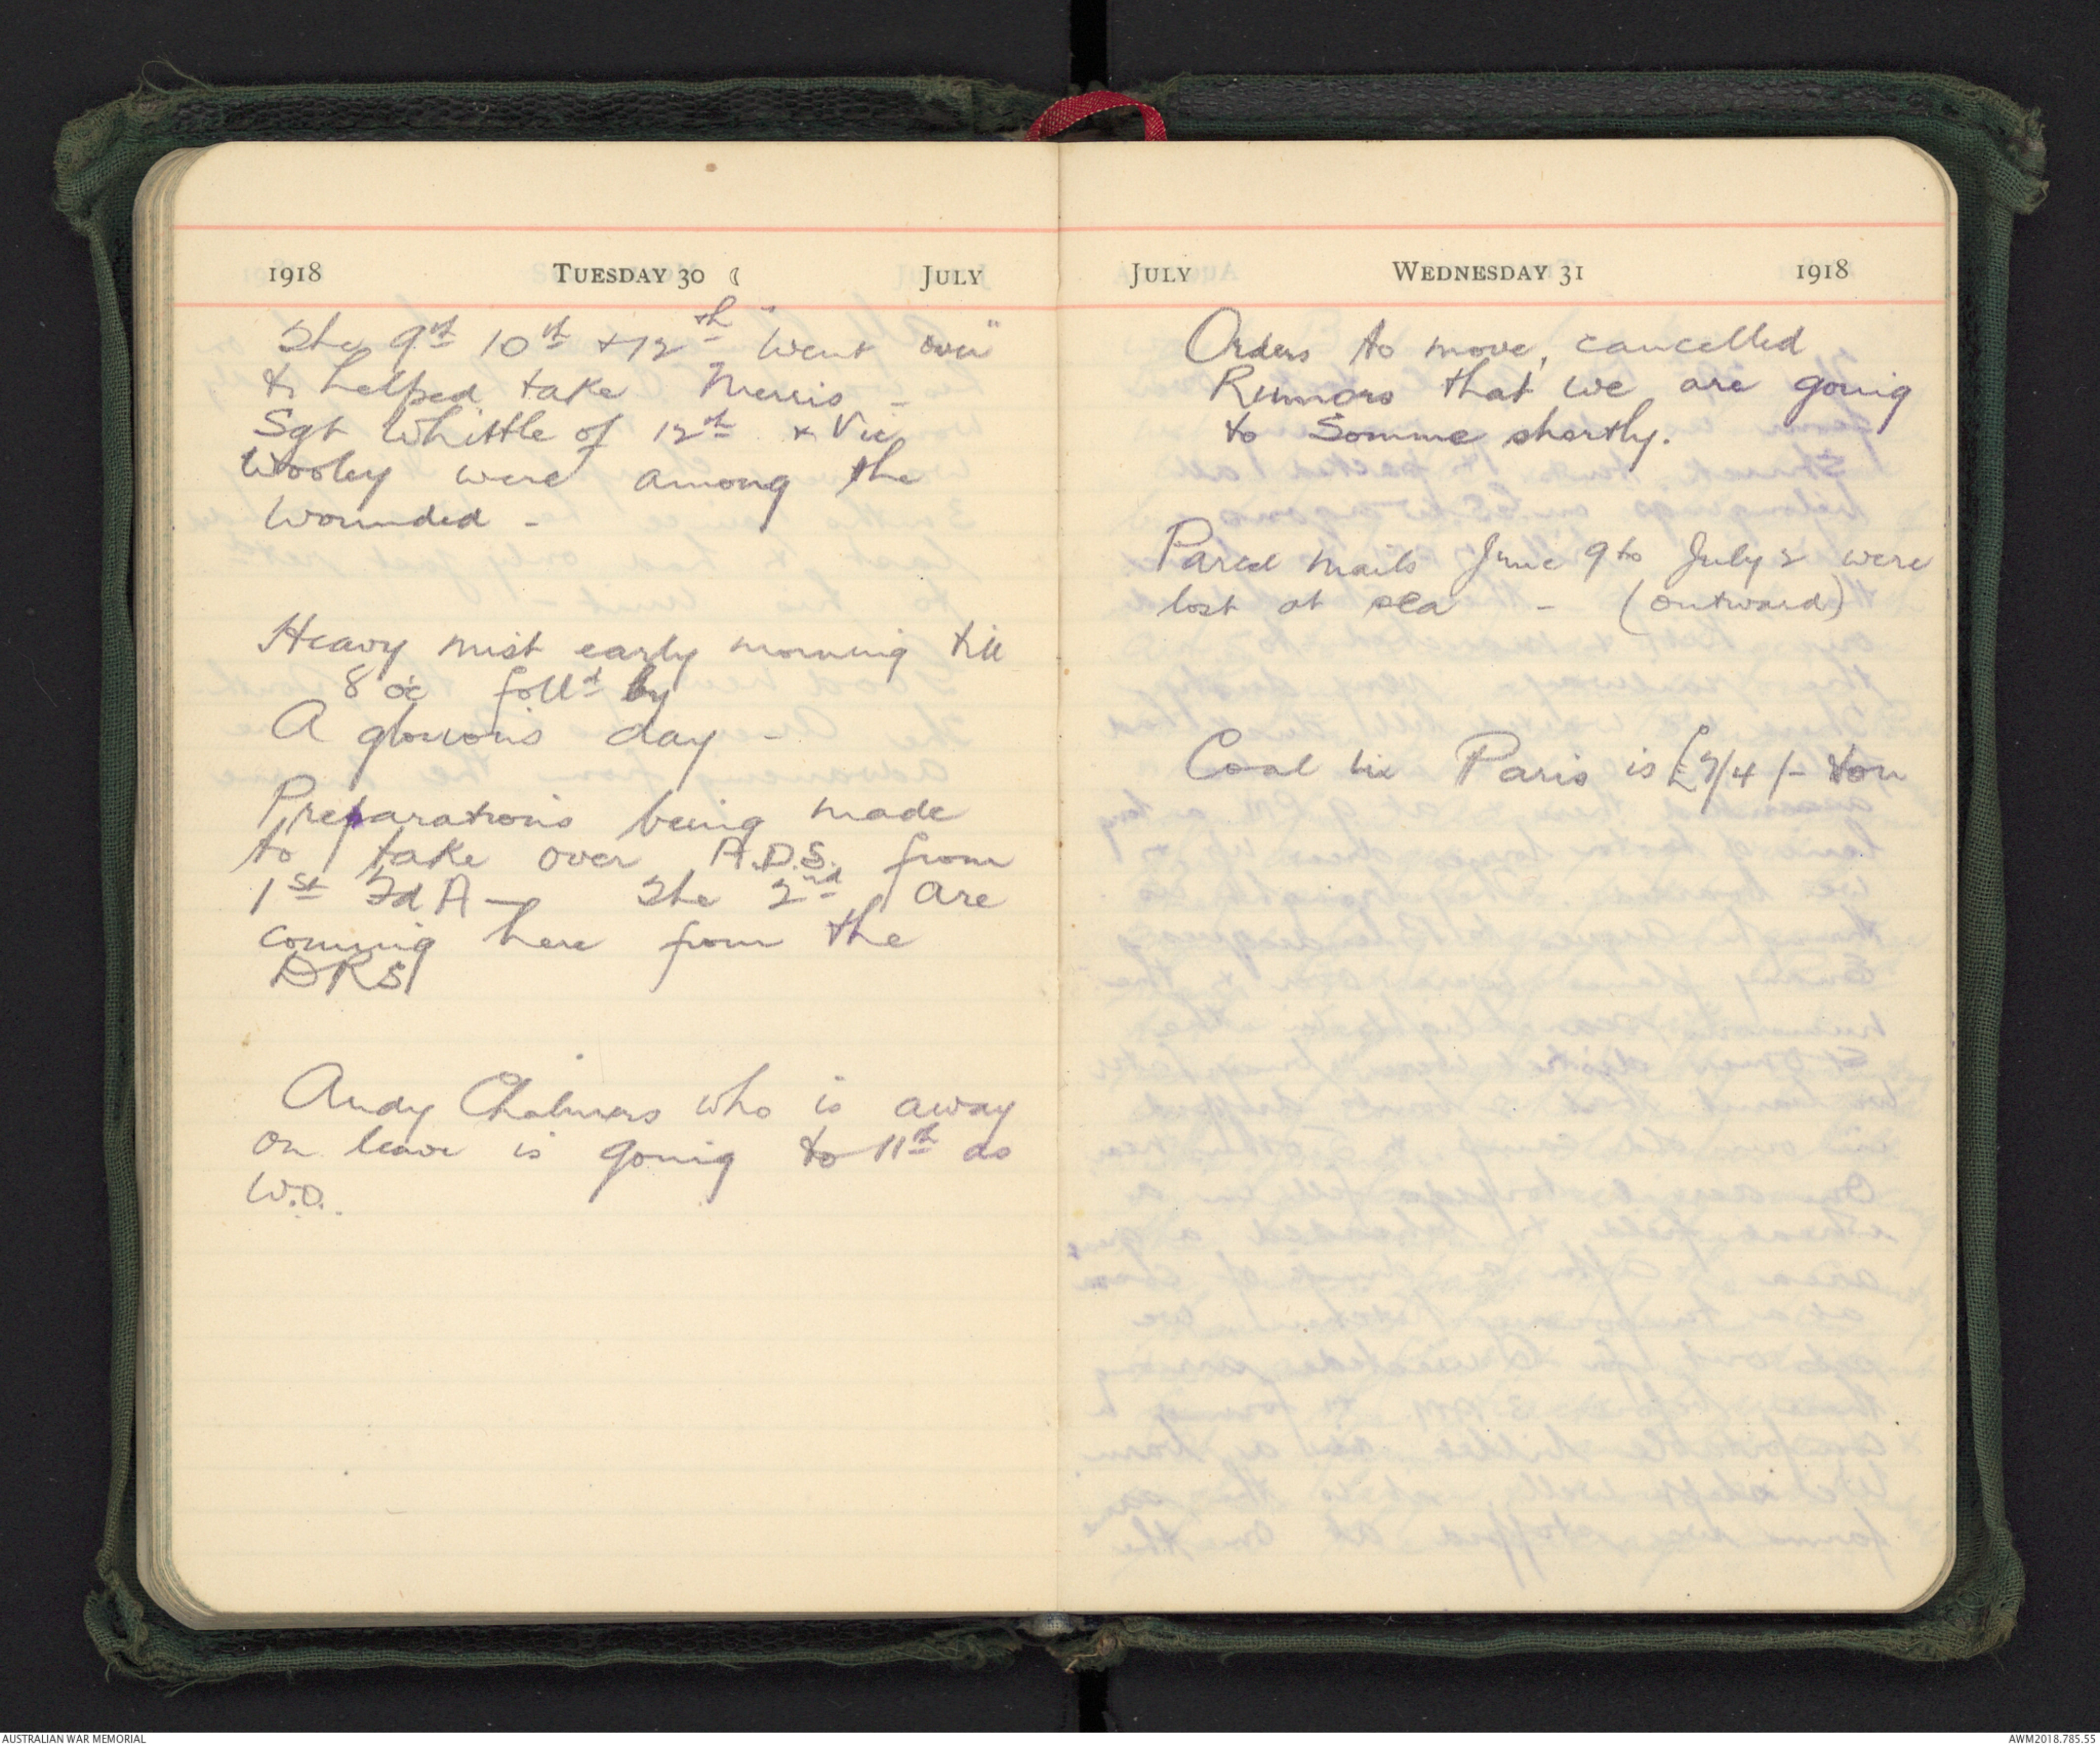 1918 TUESDAY 30 ☾ JULY
The 9th 10th + 12th "Went over"
& helped take Merris -
Sgt Whittle of 12th + Vic
Wooley were among the
wounded -
Heavy mist early morning till
8 oc foll'd by
A glorious day -
Preparations being made
to take over A.D.S. from
1st Fd A - The 2nd are
coming here from the
DRS
Andy Chalmers who is away
on leave is going to 11th as
W.O.
JULY WEDNESDAY 31 1918
Orders to move, cancelled
Rumors that we are going
to Somme shortly.
Parcel mails June 9 to July 2 were
lost at sea - (outward)
Coal in Paris is £7/4/- ton
AUSTRALIAN WAR MEMORIAL
AWM2018.785.55